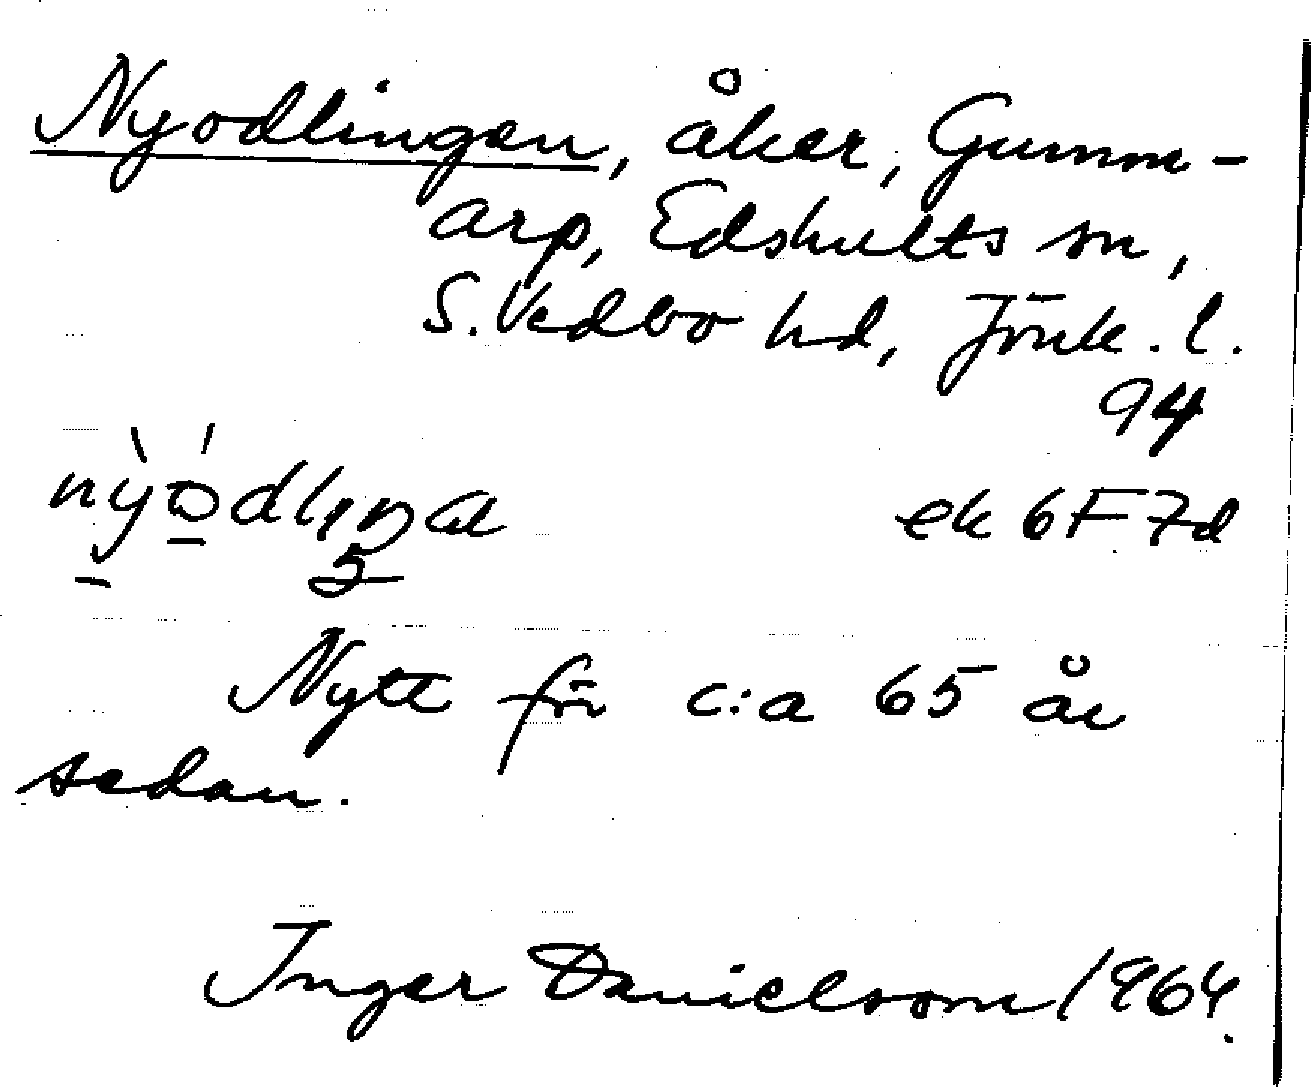 Nyodlingen, åker, Gumm-
arp, Edshults sn,
S. Vedbo hd, Jönk. l.
94
ek 6F7d
5
Nytt för c:a 65 år
sedan.
Inger Danielsson 1964.